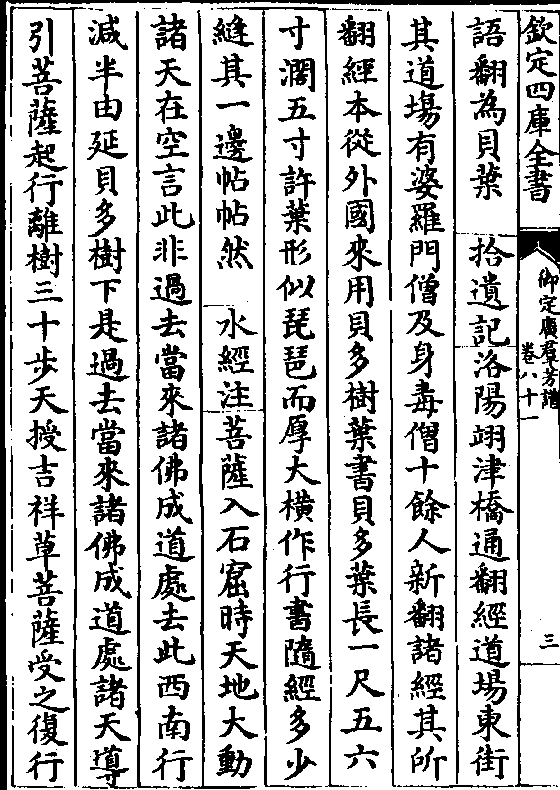 欽定四庫全書
御定廣羣芳譜
卷八十一
三
語翻為貝葉　拾遺記洛陽翊津橋通翻經道場東街
其道場有婆羅門僧及身毒僧十餘人新翻諸經其所
翻經本從外國來用貝多樹葉書貝多葉長一尺五六
寸濶五寸許葉形似琵琶而厚大橫作行書隨經多少
縫其一邊帖帖然　水經注菩薩入石窟時天地大動
諸天在空言此非過去當來諸佛成道處去此西南行
減半由延貝多樹下是過去當來諸佛成道處諸天導
引菩薩起行離樹三十步天授吉祥草菩薩受之復行